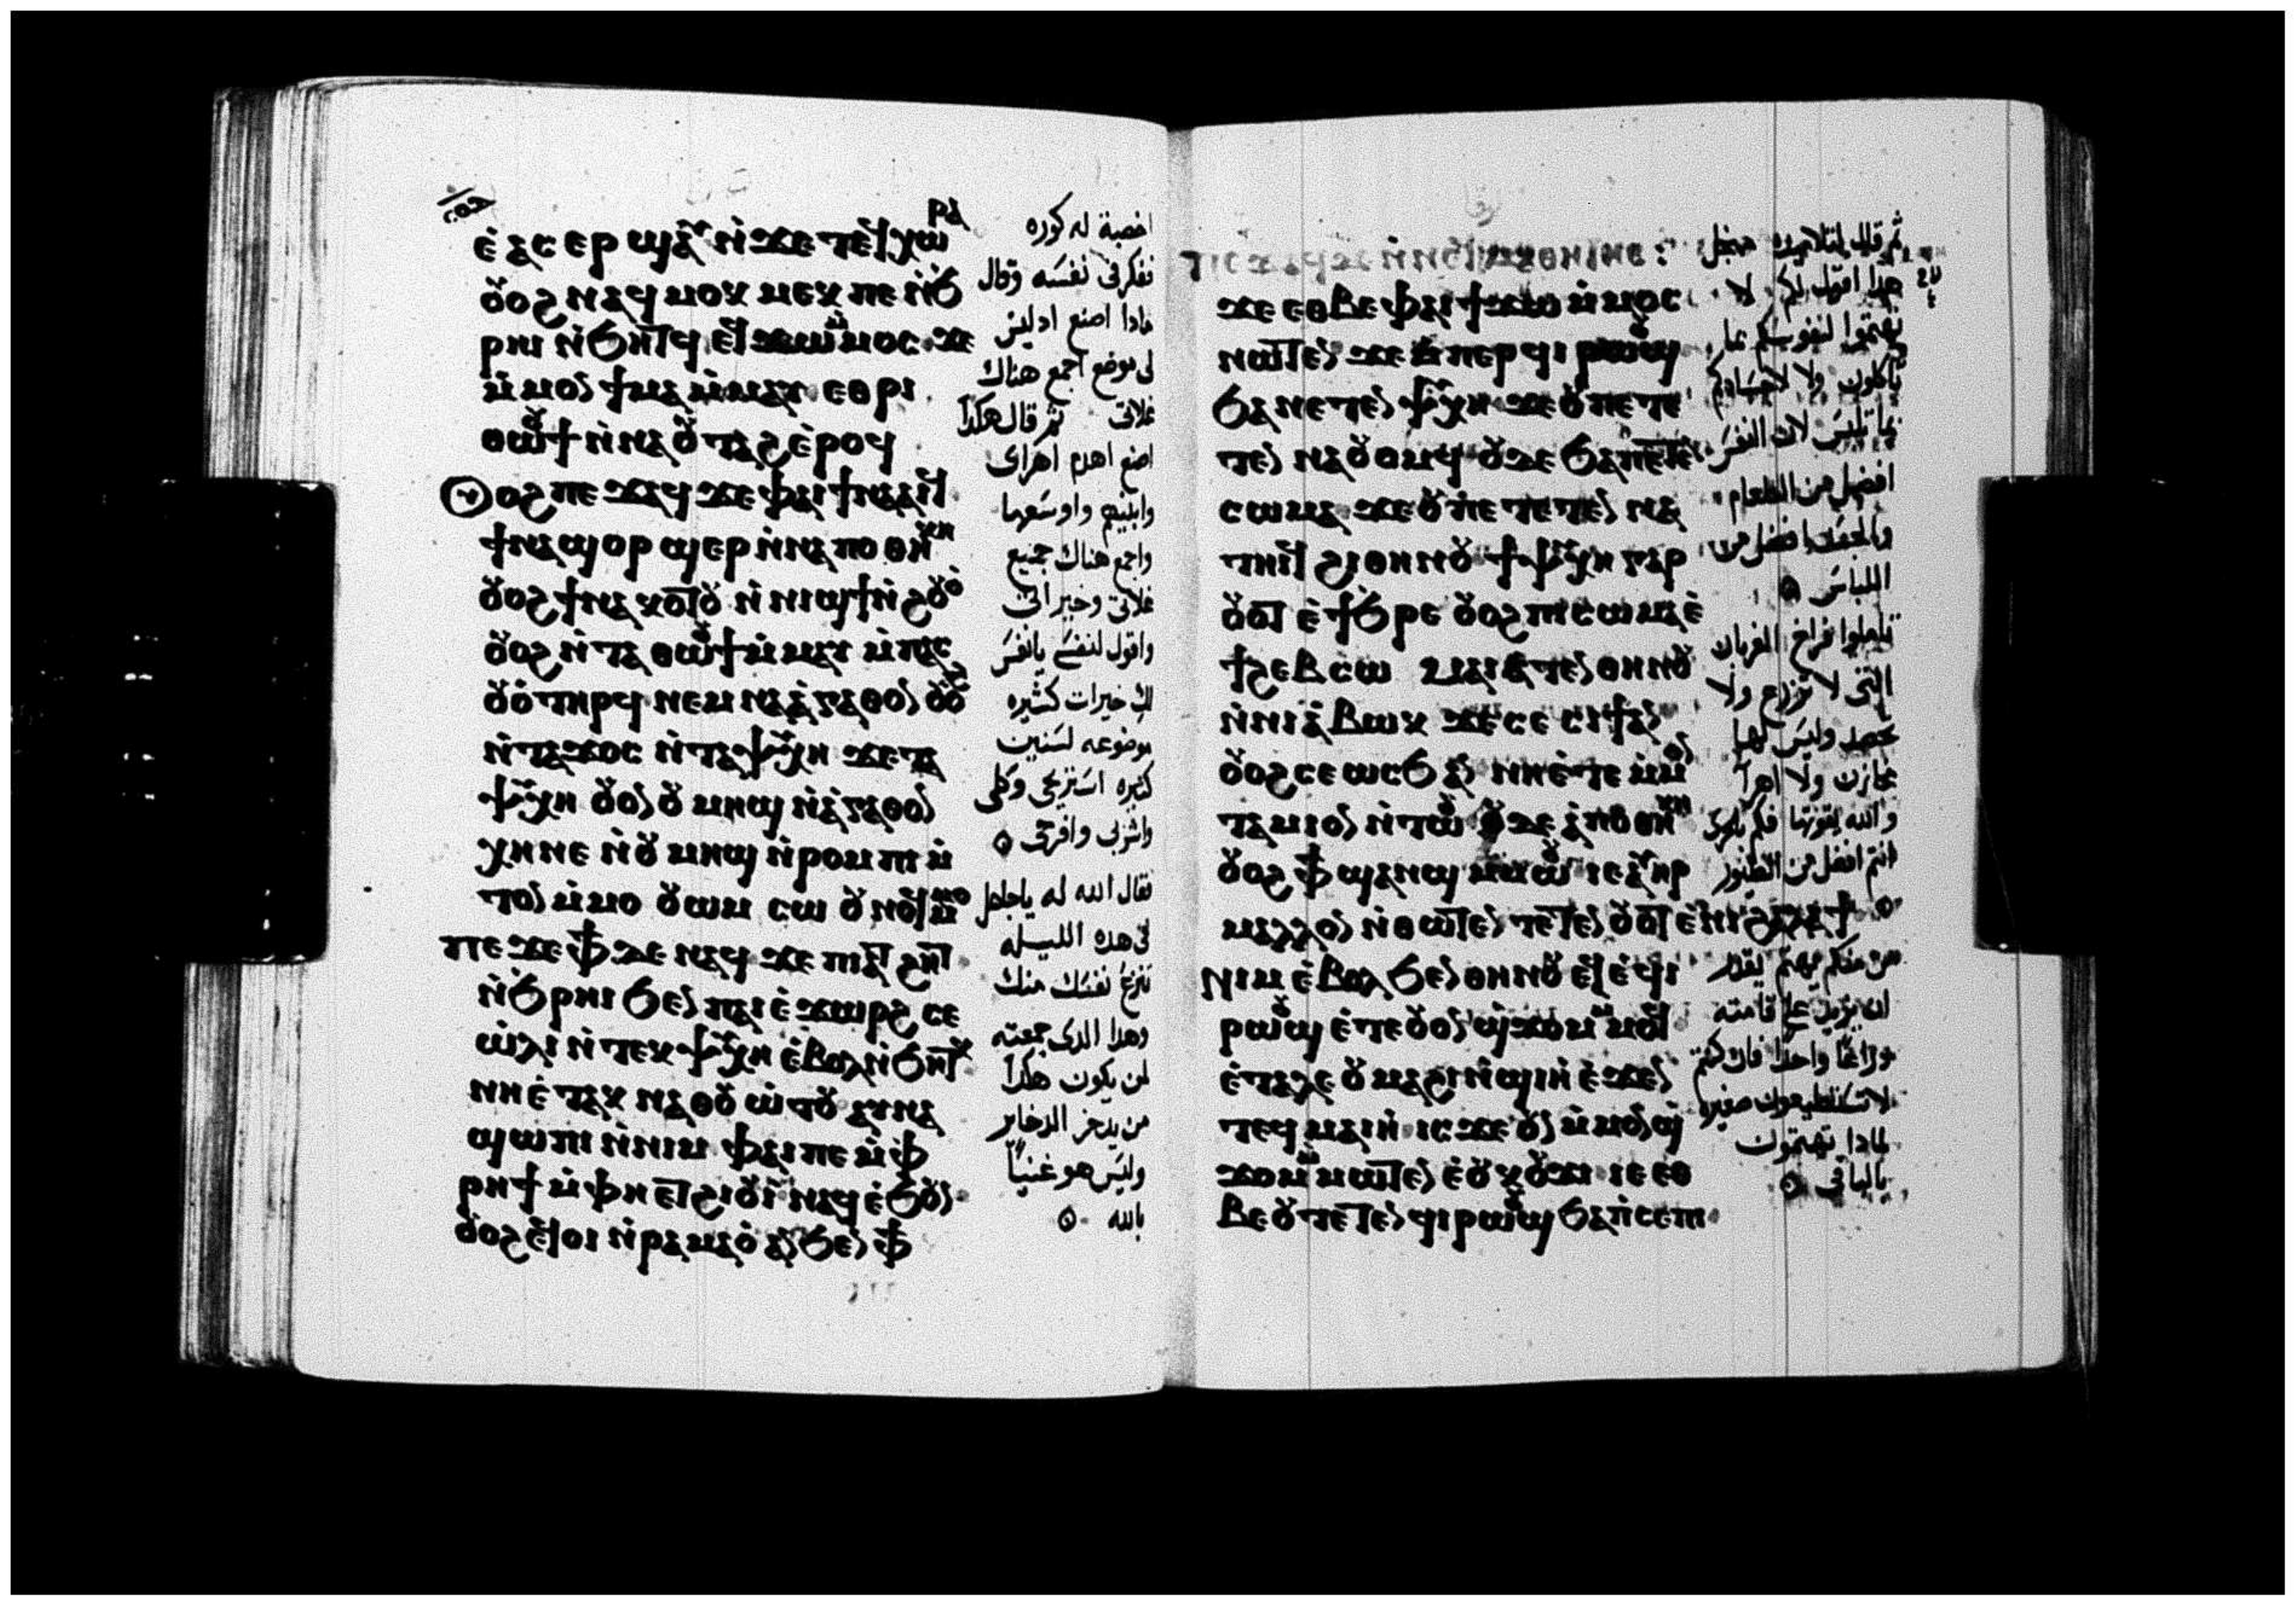 ⲉ̀ⲁⲥⲉⲣ ϣⲁⲩ ⲛ̀ϫⲉ ⲧⲉϥⲭⲱⲣⲁ
ⲟⲩⲟϩ ⲛⲁϥ ⲙⲟⲕⲙⲉⲕ ⲡⲉ ⲛ̀ϧ
ⲣⲏⲓ ⲛ̀ϧⲏⲧϥ ⲉϥϫⲱ ⲙ̀ⲙⲟⲥ ϫⲉ
ⲙ̀ⲙⲟⲛ ϯⲙⲁ ⲙ̀ⲙⲁⲩ ⲉⲑⲣⲓ
ⲑⲱⲟⲩϯ ⲛ̀ⲛⲁⲟⲩⲧⲁϩ ⲉ̀ⲣⲟϥ
ⲟⲩⲟϩ ⲡⲉϫⲁϥ ϫⲉ ⲫⲁⲓ ϯⲛⲁⲁⲓϥ
ϯⲛⲁϣⲟⲣϣⲉⲣ ⲛ̀ⲛⲁⲡⲟⲑⲏⲕⲏ
ⲟⲩⲟϩ ϯⲛⲁⲕⲟⲧⲟⲩ ⲛ̀ⲛⲓϣϯ ⲛ̀ϩⲟⲩⲟ̀
ⲟⲩⲟϩ ⲛ̀ⲧⲁⲑⲱⲟⲩϯ ⲙ̀ⲙⲁⲩ ⲙ̀ⲡⲁⲥ
ⲟⲩⲟ̀ ⲧⲏⲣϥ ⲛⲉⲙ ⲛⲁⲁ̀ⲅⲁⲑⲟⲛ ⲟⲩⲟϩ
ⲛ̀ⲧⲁϫⲟⲥ ⲛ̀ⲧⲁⲯⲩⲭⲏ ϫⲉ ⲧⲁ
ⲯⲩⲭⲏ ⲟⲩⲟⲛ ⲟⲩⲙⲏϣ ⲛ̀ⲁ̀ⲅⲁⲑⲟⲛ
ⲭⲏ ⲛⲉ ⲛ̀ⲟⲩⲙⲏϣ ⲛ̀ⲣⲟⲙⲡⲓ ⲙ̀
ⲧⲟⲛ ⲙ̀ⲙⲟ ⲟⲩⲱⲙ ⲥⲱ ⲟⲩⲛⲟϥ ⲙ̀ⲙⲟ
ⲡⲉϫⲉ ⲫϯ ⲇⲉ ⲛⲁϥ ϫⲉ ⲡⲓⲁⲧϩⲏⲧ
ⲛ̀ϧⲣⲏⲓ ϧⲉⲛ ⲡⲁⲓⲉ̀ϫⲱⲣϩ ⲥⲉ
ⲱ̀ⲗⲓ ⲛ̀ⲧⲉⲕⲯⲩⲭⲏ ⲉ̀ⲃⲟⲗ ⲛ̀ϧⲏⲧⲕ
ⲛⲏⲉ̀ⲧⲁⲕ ⲛⲁⲑⲟⲩⲱ̀ⲧⲟⲩ ⲁⲩⲛⲁ
ϣⲱⲡⲓ ⲛ̀ⲛⲓⲙ ⲫⲁⲓ ⲡⲉ ⲙ̀ⲫ
ⲣⲏϯ ⲙ̀ⲫⲏ ⲉⲧϩⲓⲟⲩⲓ̀ ⲛⲁϥ ⲉ̀ϧⲟⲩⲛ
ⲟⲩⲟϩ ⲉϥⲟⲓ ⲛ̀ⲣⲁⲙⲁⲟ̀ ⲁⲛ ϧⲉⲛ ⲫϯ
اخصبة له كوره
ففكر في نفسه وقال
مادا اصنع اد ليس
لى موضع اجمع هناك
غلاتى ثم قال هكدا
اصنع اهدم اهراى
وابنيهم واوسعها
واجمع هناك جميع
غلاتى وخيراتى
واقول لنفسى يانفس
لك خيرات كثيره
موضوعه لسنين
كثيره استريحى وكلى
واشربى وافرحى
فقال الله له ياجاهل
فى هده الليله
تنزع نفسك منك
وهدا الدى جمعته
لمن يكون هكدا
من يدخر الدخاير
وليس هو غنيا
بالله
ϫⲉ ⲉⲑⲃⲉ ⲫⲁⲓ ϯϫⲱ ⲙ̀ⲙⲟⲥ
ⲛⲱⲧⲉⲛ ϫⲉ ⲙ̀ⲡⲉⲣϥⲓ ⲣⲱⲟⲩϣ
ϧⲁ ⲛⲉⲧⲉⲛⲯⲩⲭⲏ ϫⲉ ⲟⲩⲡⲉⲧⲉ
ⲧⲉⲛ ⲛⲁⲟⲩⲟⲙϥ ⲟⲩⲇⲉ ϧⲁ ⲡⲉⲧⲉⲛ
ⲥⲱⲙⲁ ϫⲉ ⲟⲩⲡⲉⲧⲉⲧⲉⲛ ⲛⲁ
ⲧⲏⲓϥ ϩⲓⲑⲏⲛⲟⲩ ϯⲯⲩⲭⲏ ⲅⲁⲣ
ⲟⲩⲟⲧ ⲉ̀ϯϧⲣⲉ ⲟⲩⲟϩ ⲡⲓⲥⲱⲙⲁ ⲉ̀
ϯϩⲉⲃⲥⲱ ⲙⲁⲓⲁⲧⲉⲛⲑⲏⲛⲟⲩ
ⲛ̀ⲛⲓⲁ̀ⲃⲱⲕ ϫⲉ ⲥⲉⲥⲓϯ ⲁⲛ
ⲟⲩⲟϩ ⲥⲉⲱⲥϧ ⲁⲛ ⲛⲏⲉ̀ⲧⲉ ⲙ̀ⲙⲟⲛ
ⲧⲁⲙⲓⲟⲛ ⲛ̀ⲧⲱⲟⲩ ⲟⲩⲇⲉ ⲁ̀ⲡⲟⲑⲏⲕⲏ
ⲟⲩⲟϩ ⲫϯ ϣⲁⲛϣ ⲙ̀ⲙⲱⲟⲩ ⲓⲉ ⲁⲩⲏⲣ
ⲙⲁⲗⲗⲟⲛ ⲛ̀ⲑⲱⲧⲉⲛ ⲧⲉⲧⲉⲛ ⲟⲩⲟⲧ ⲉ̀ⲛⲓϩⲁⲗⲁϯ
ⲛⲓⲙ ⲉ̀ⲃⲟⲗ ϧⲉⲛ ⲑⲏⲛⲟⲩ ⲉϥⲉ̀ϥⲓ
ⲣⲱⲟⲩϣ ⲉ̀ⲧⲉ ⲟⲩⲟⲛ ϣϫⲟⲙ ⲙ̀ⲙⲟϥ
ⲉ̀ⲧⲁⲗⲉ ⲟⲩⲙⲁϩⲓ ⲛ̀ϣⲓⲏ ⲉ̀ϫⲉⲛ
ⲧⲉϥⲙⲁⲓⲏ ⲓⲥϫⲉ ⲟⲩⲛ ⲙ̀ⲙⲟⲛ ϣ̀
ϫⲟⲙ ⲙ̀ⲙⲱⲧⲉⲛ ⲉ̀ⲟⲩⲕⲟⲩϫⲓ ⲓⲉ ⲉⲑ
ⲃⲉⲟⲩ ⲧⲉⲧⲉⲛϥⲓ ⲣⲱⲟⲩϣ ϧⲁ ⲡ̀ⲥⲉⲡⲓ
ثم قال لتلاميده من اجل
هدا اقول لكم لا
تهتموا لنفوسكم بما
تاكلون ولا لاجسادكم
بما تلبس لان النفس
افضل من الطعام
والجسد افضل من
اللباس
تاملوا فراخ الغربان
التى لا تزرع ولا
تحصد وليس لها
مخازن ولا اهرا
والله يقوتها فكم بالحرى
انتم افضل من الطيور
من منكم يهتم يقدر
ان يزيد على قامته
دراعا واحدا فان كنتم
لا تستطيعون صغيره
لمادا تهتمون
بالباقى